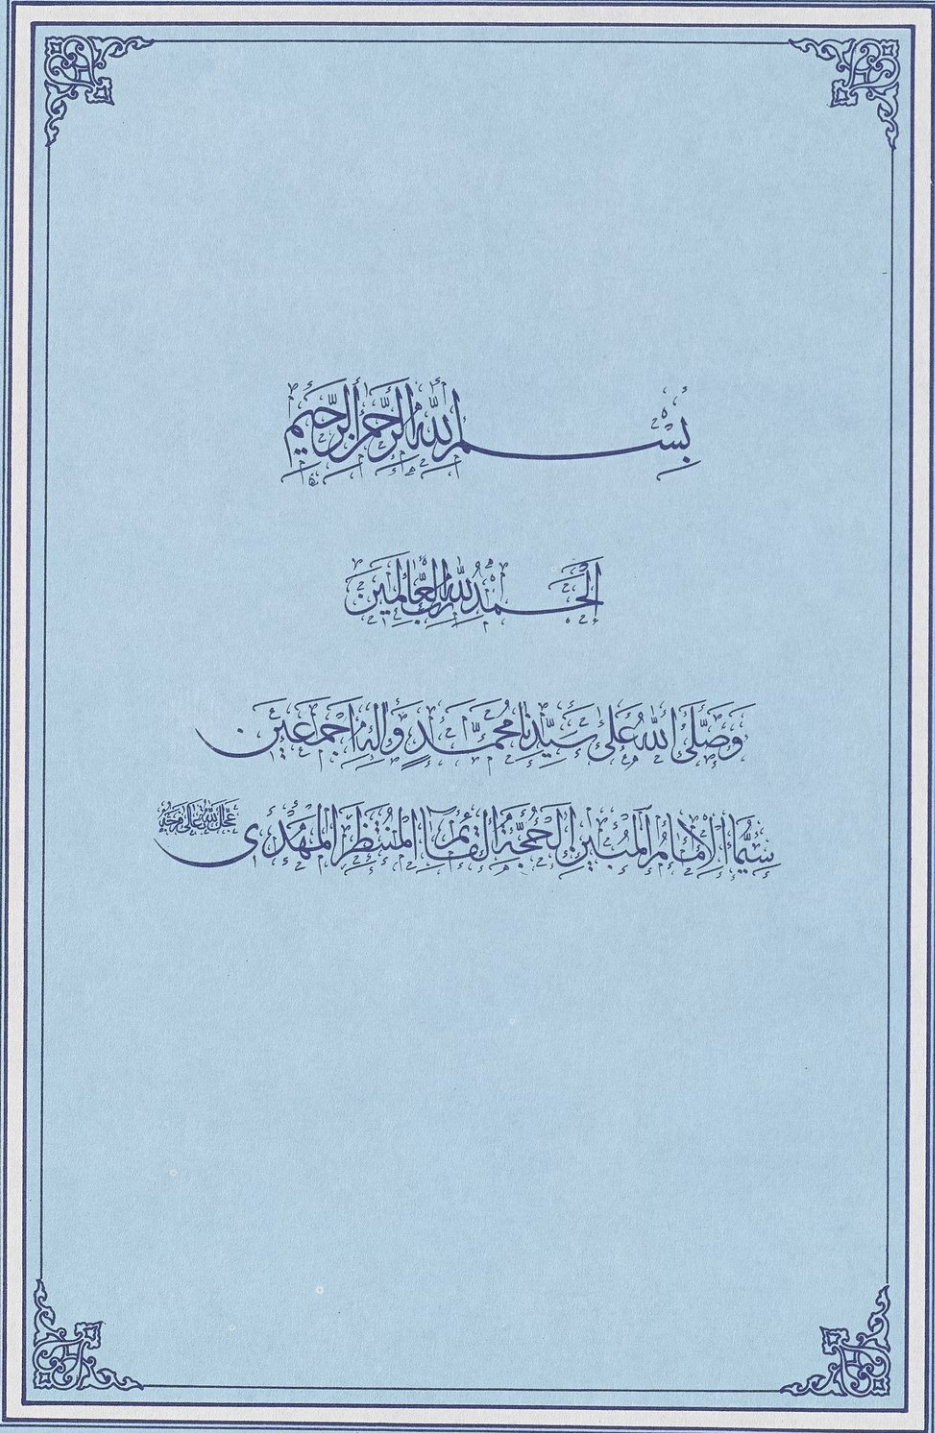 بِسْمِ اللهِ الرَّحْمنِ الرَّحِيمِ
اَلْحَمْدُ لِلّهِ رَبِّ الْعالَمِينَ
وَصَلَّى اللهُ عَلى سَيِّدِنا مُحَمَّدٍ وَآلِهِ اَجْمَعِينَ
سِيَّمَا الْاِمامُ الْمُبِينِ الْحُجَّةُ الْقائِمِ الْمُنْتَظَرِ الْمَهْدِى عَجَّلَ اللهُ تَعالى فَرَجَهُ